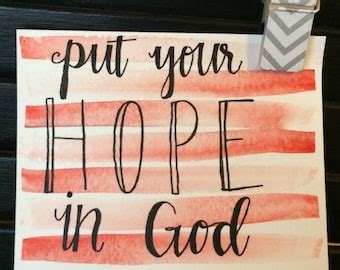 put your
HOPE
in God